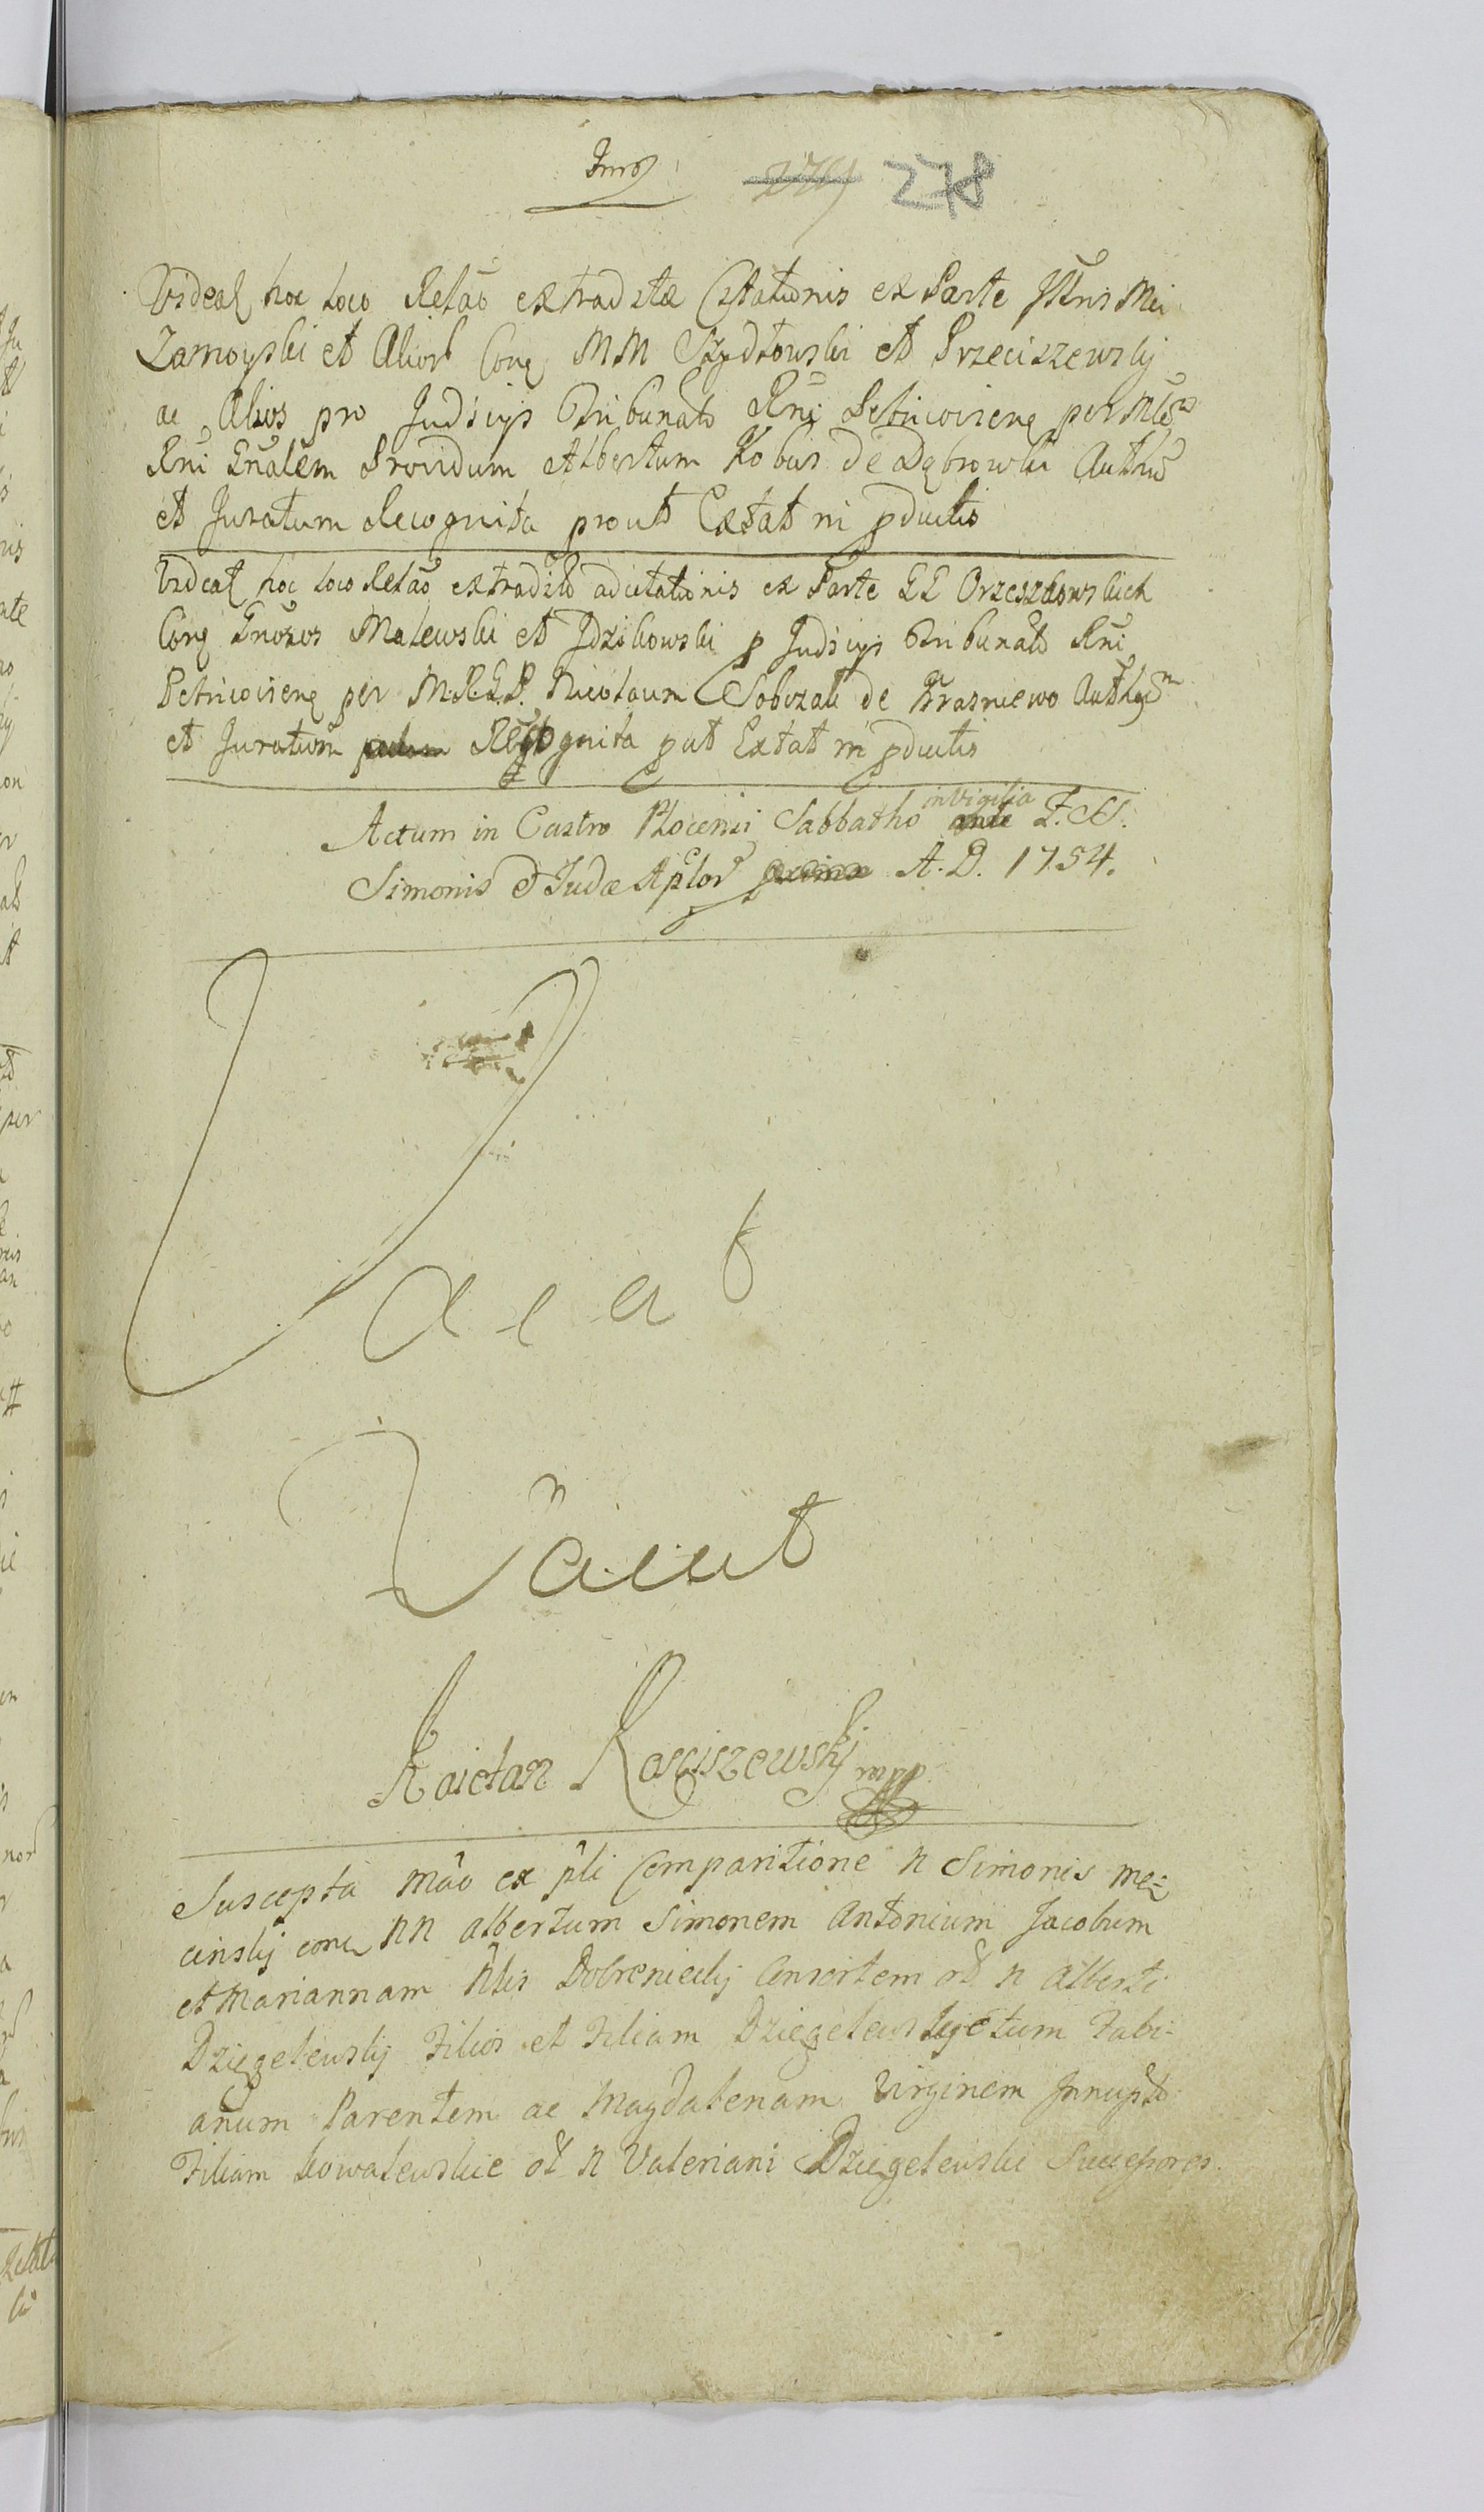 278
Videat hoc loco Relao extraditæ Citationis ex Parte
Zamoyski et Alior Conq MM Szydłowski et Przeciszewskij
ac Alios pro Judicijs Tribunalis Rni Petricovienq per
Rni Gnalem Providum Albertum Kobus de Dąbrowki Authm
et Juratum Recognita prout Extat in pductis
Videat hoc loco Relao extradit adcitationis ex Parte GG Orzeszkowskich
Conq Gnosos Malewski et Idzikowski p Judicijs Tribunalis Rni
Petricovienq per M.R.G.P. Nicolaum Sobczak de Krasniewo Authm
et Juratum Recognita put Extat in pductis
Actum in Castro Plocensi Sabbatho in Vigilia ante F. SS.
Simonis et Judæ Aplor A. D. 1754.
Vacat
Vacat
Kaietan Kosciszewskj mpp
Suscepta mâo ex pli Comparitione N Simonis me-
cinskij conq NN Albertum Simonem Antonium Jacobum
et Mariannam Nlis Dobrenieckij Consortem N Alberti
Dziegelewskij Filios et Filiam Dziegelewskij tum Fabi-
anum Parentem ac Magdalenam Virginem Innupt
Filiam kowalewskie N Valeriani Dziegelewski Successores